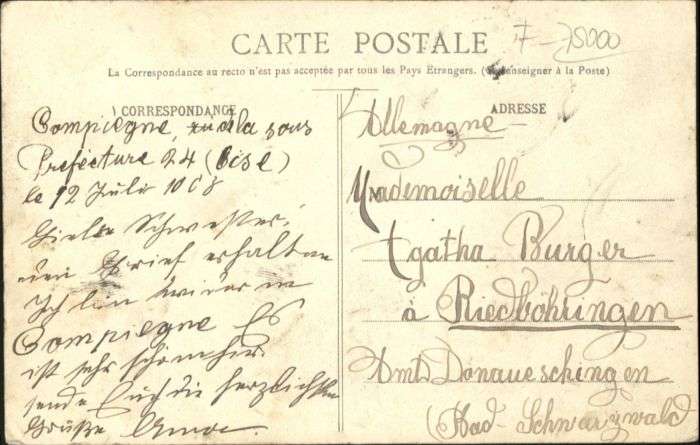 CARTE POSTALE
7-75000
La Correspondance au recto n'est pas acceptée par tous les Pays Etrangers. (Se renseigner à la Poste)
CORRESPONDANCE
Compiegne, ru dla sous
Prefecture 24 (Oise)
le 12 Juli 1908
Liebe Schwester!
den Brief erhalten
Ich bin wieder in
Compiegne Es
ist sehr schön hier.
sende Euch die herzlichsten
Grüße
ADRESSE
Allemagne
Mademoiselle
Agatha Burger
à Riedbohringen
Amts Donaueschingen
(Bad-Schwarzwald